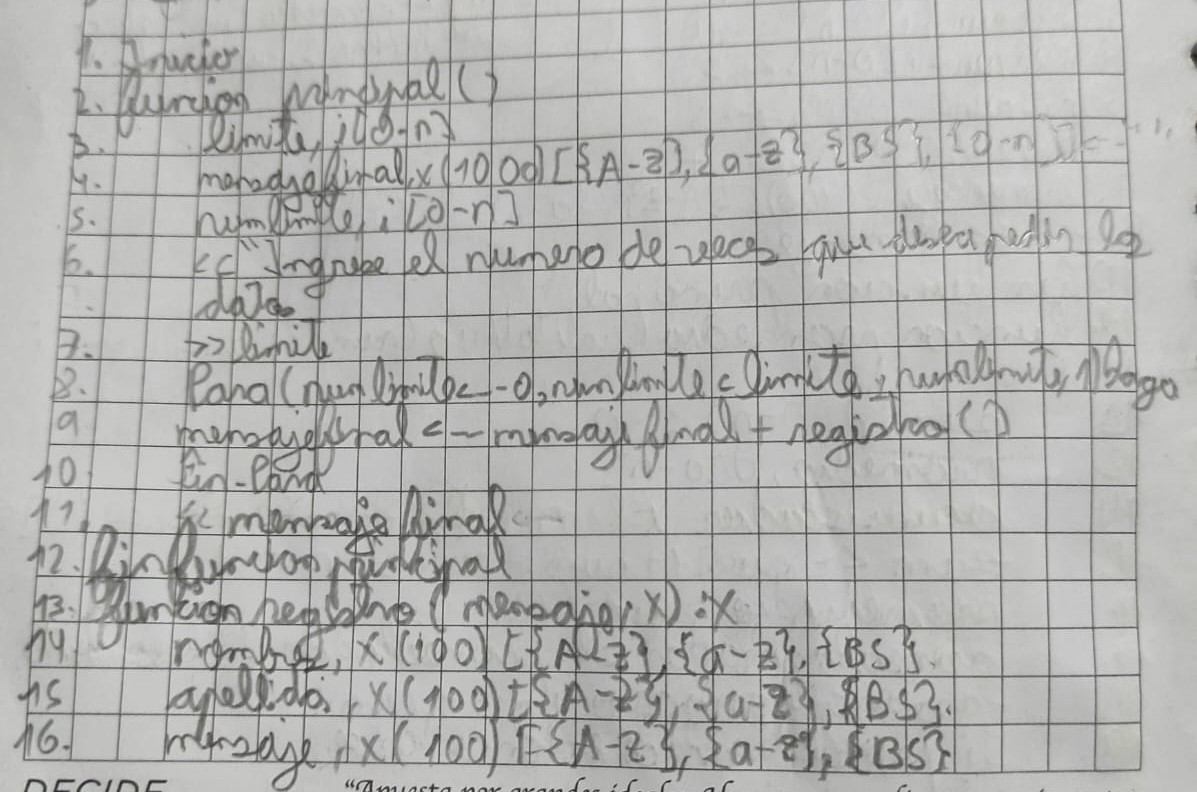 1. Inicio
2. funcion principal()
3. limite, i[0-n]
4. mensajefinal, x(1000)[{A-Z},{a-z},{BS},{0-n}]<-"".
5. numlimite, i[0-n]
6. << "Ingrese el numero de veces que desea pedir los
datos
7. >> limite
8. Para(numlimite<-0, numlimite<limite, numlimite, 1) Haga
9 mensajefinal <- mensajefinal + registro()
10 Fin-Para
11. << mensajefinal
12. finfuncion principal
13. funcion registro( mensaje, X) : X
14 nombre, X (100) [{A-Z},{a-z},{BS}.
15 apellido, X(100)[{A-Z},{a-z},{BS}.
16. mensaje, X(100)[{A-Z},{a-z},{BS}
DECIDE